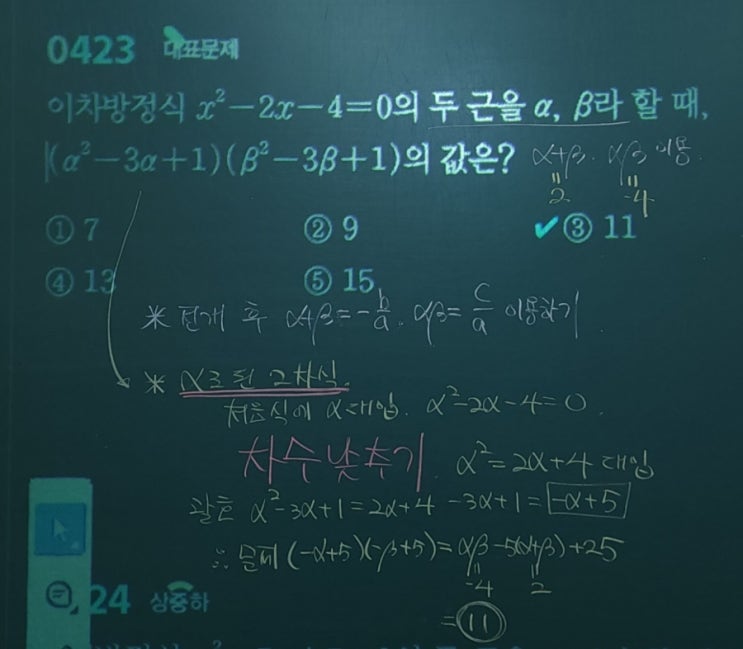 0423 대표문제
이차방정식 x²-2x-4=0의 두 근을 α, β라 할 때,
(α²-3α+1)(β²-3β+1)의 값은? α+β. αβ 이용.
=2 =-4
① 7 ② 9 ✔③ 11
④ 13 ⑤ 15
* 전개 후 α+β=-b/a. αβ=c/a 이용하기.
* α로 된 2차식.
처음식에 α대입. α²-2α-4=0.
차수낮추기. α²=2α+4 대입
괄호 α²-3α+1=2α+4-3α+1=-α+5
∴ 문제 (-α+5)(-β+5)=αβ-5(α+β)+25
=-4 =2
=11
24 상중하